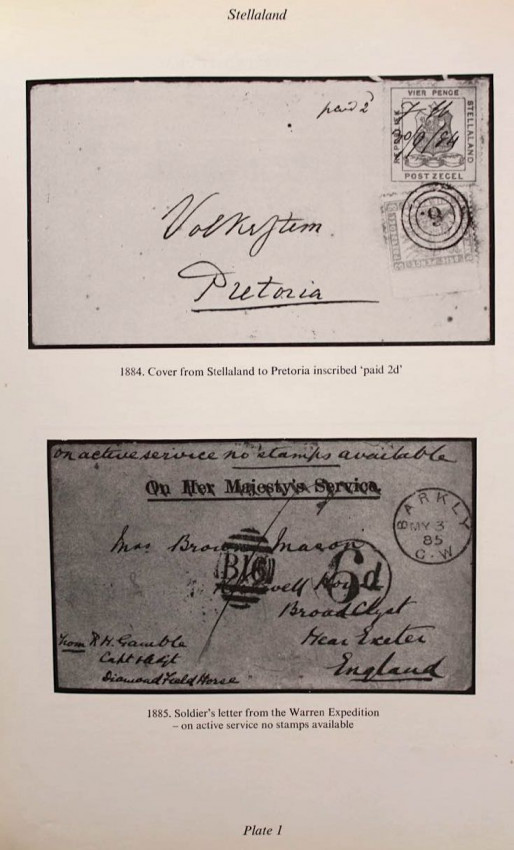 Stellaland
paid 2
VIER PENCE
REPUBLIEK
STELLALAND
POSTZEGEL
Volksstem
Pretoria
1884. Cover from Stellaland to Pretoria inscribed ‘paid 2d’
on active service no stamps available
On Her Majesty's Service.
BARKLY
MY 3
85
G.W
Mrs Brown Mason
6d
Broad Clyst
Near Exeter
England
from R H. Gamble
Capt & Adjt
Diamond Field Horse
1885. Soldier's letter from the Warren Expedition
– on active service no stamps available
Plate 1